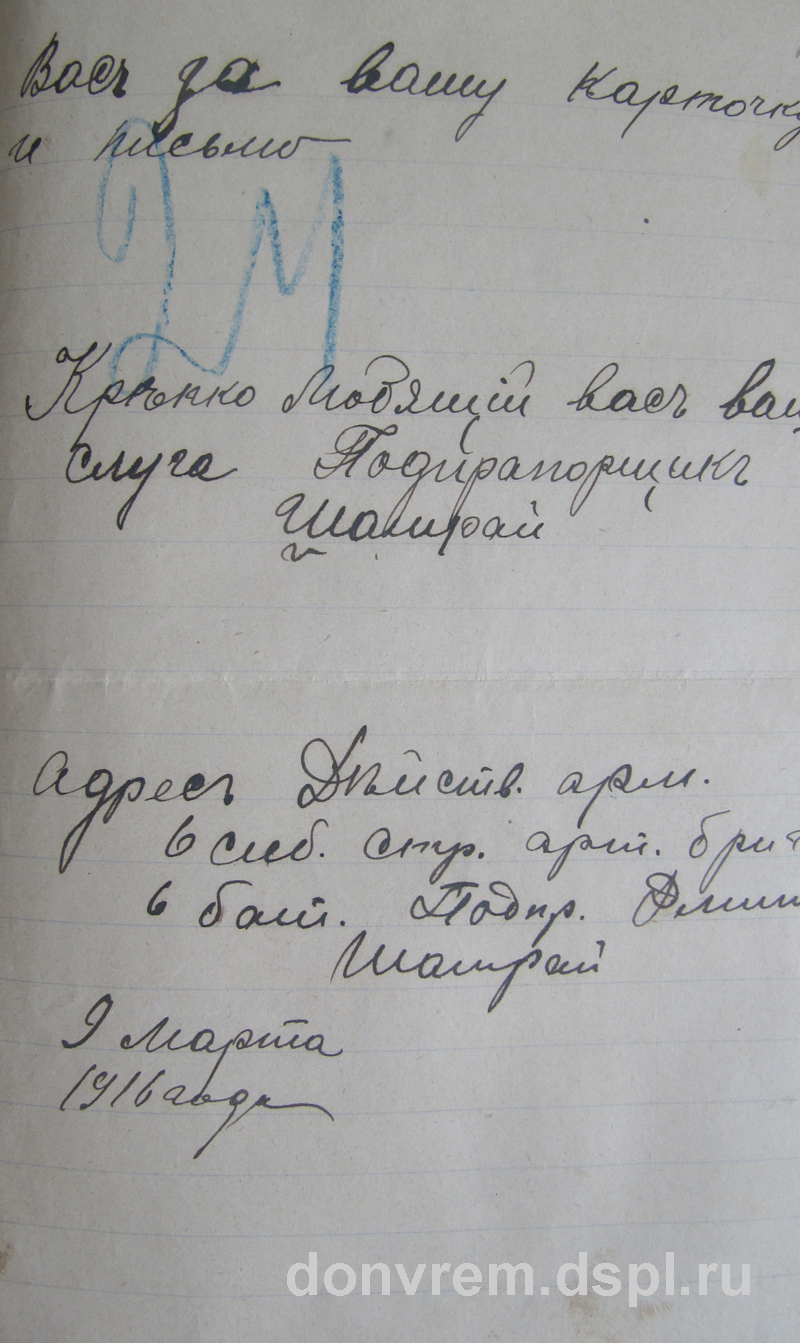 Васъ за вашу карточку
и письмо
2М
Крѣпко любящій васъ ваш
слуга Подпрапорщикъ
Шаптрай
Адресъ Дѣйств. арм.
6 сиб. стр. арт. бриг
6 бат. Подпр. Дмит
Шаптрай
9 Марта
1916 года
donvrem.dspl.ru